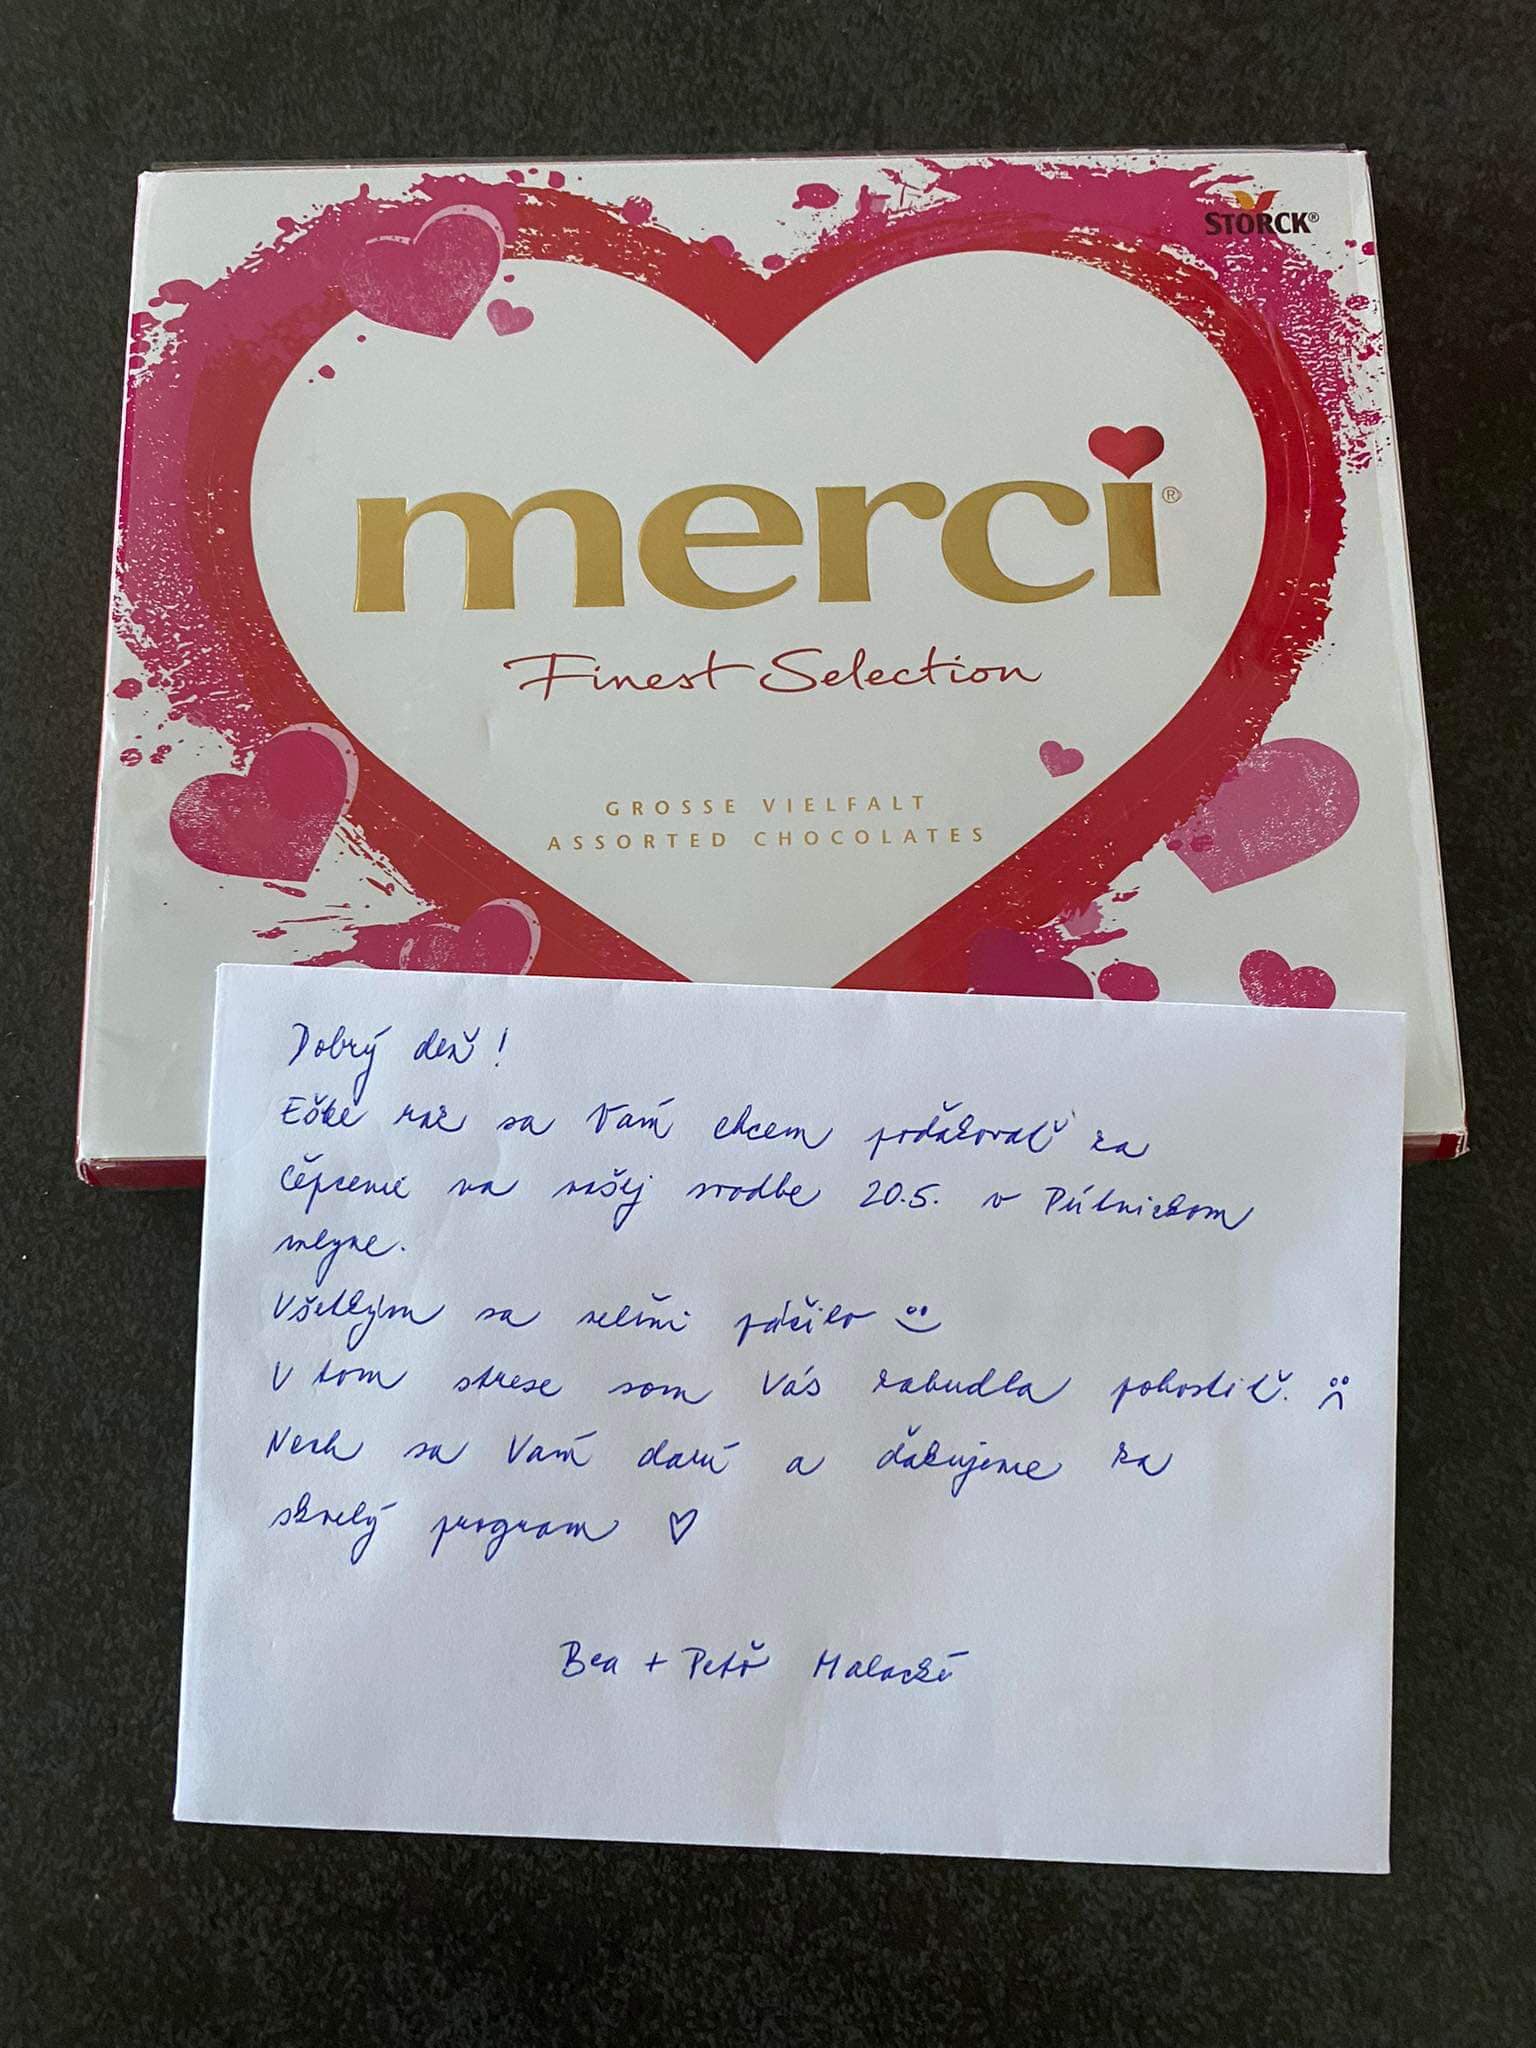 STORCK®
merci®
Finest Selection
GROSSE VIELFALT
ASSORTED CHOCOLATES
Dobrý deň!
Ešte raz sa Vám chcem poďakovať za
čepčenie na našej svadbe 20.5. v Pútnickom
mlyne.
Všetkým sa veľmi páčilo
V tom strese som Vás zabudla pohostiť.
Nech sa Vám darí a ďakujeme za
skvelý program ♡
Bea + Peťo Malackí